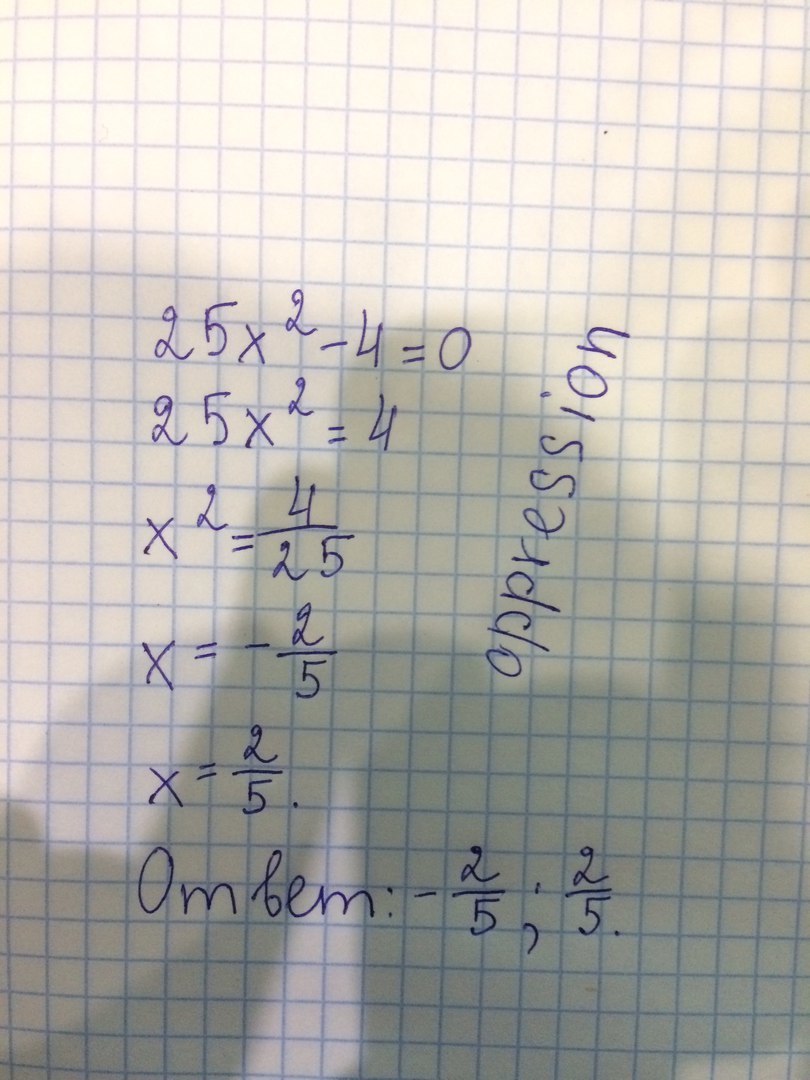 25x² - 4 = 0
25x² = 4
x² = 4/25
x = - 2/5
x = 2/5.
Ответ: - 2/5 ; 2/5.
oppression